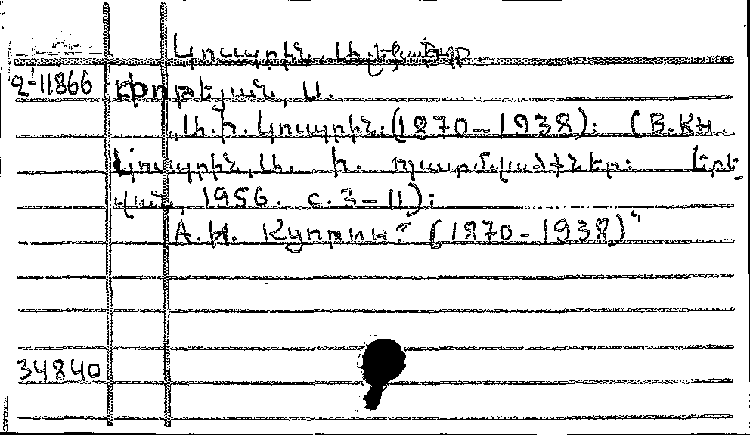 Կուպրին, Ալեքսանդր
2-11866 Քիոթեյան, Ս.
Ա.Ի. Կուպրին. (1870-1938): (В.кн.
Կուպրին, Ա. Ի. Պատմվածքներ: Երե
վան, 1956. с.3-11):
А.И. Куприн. (1870-1938)"
34840